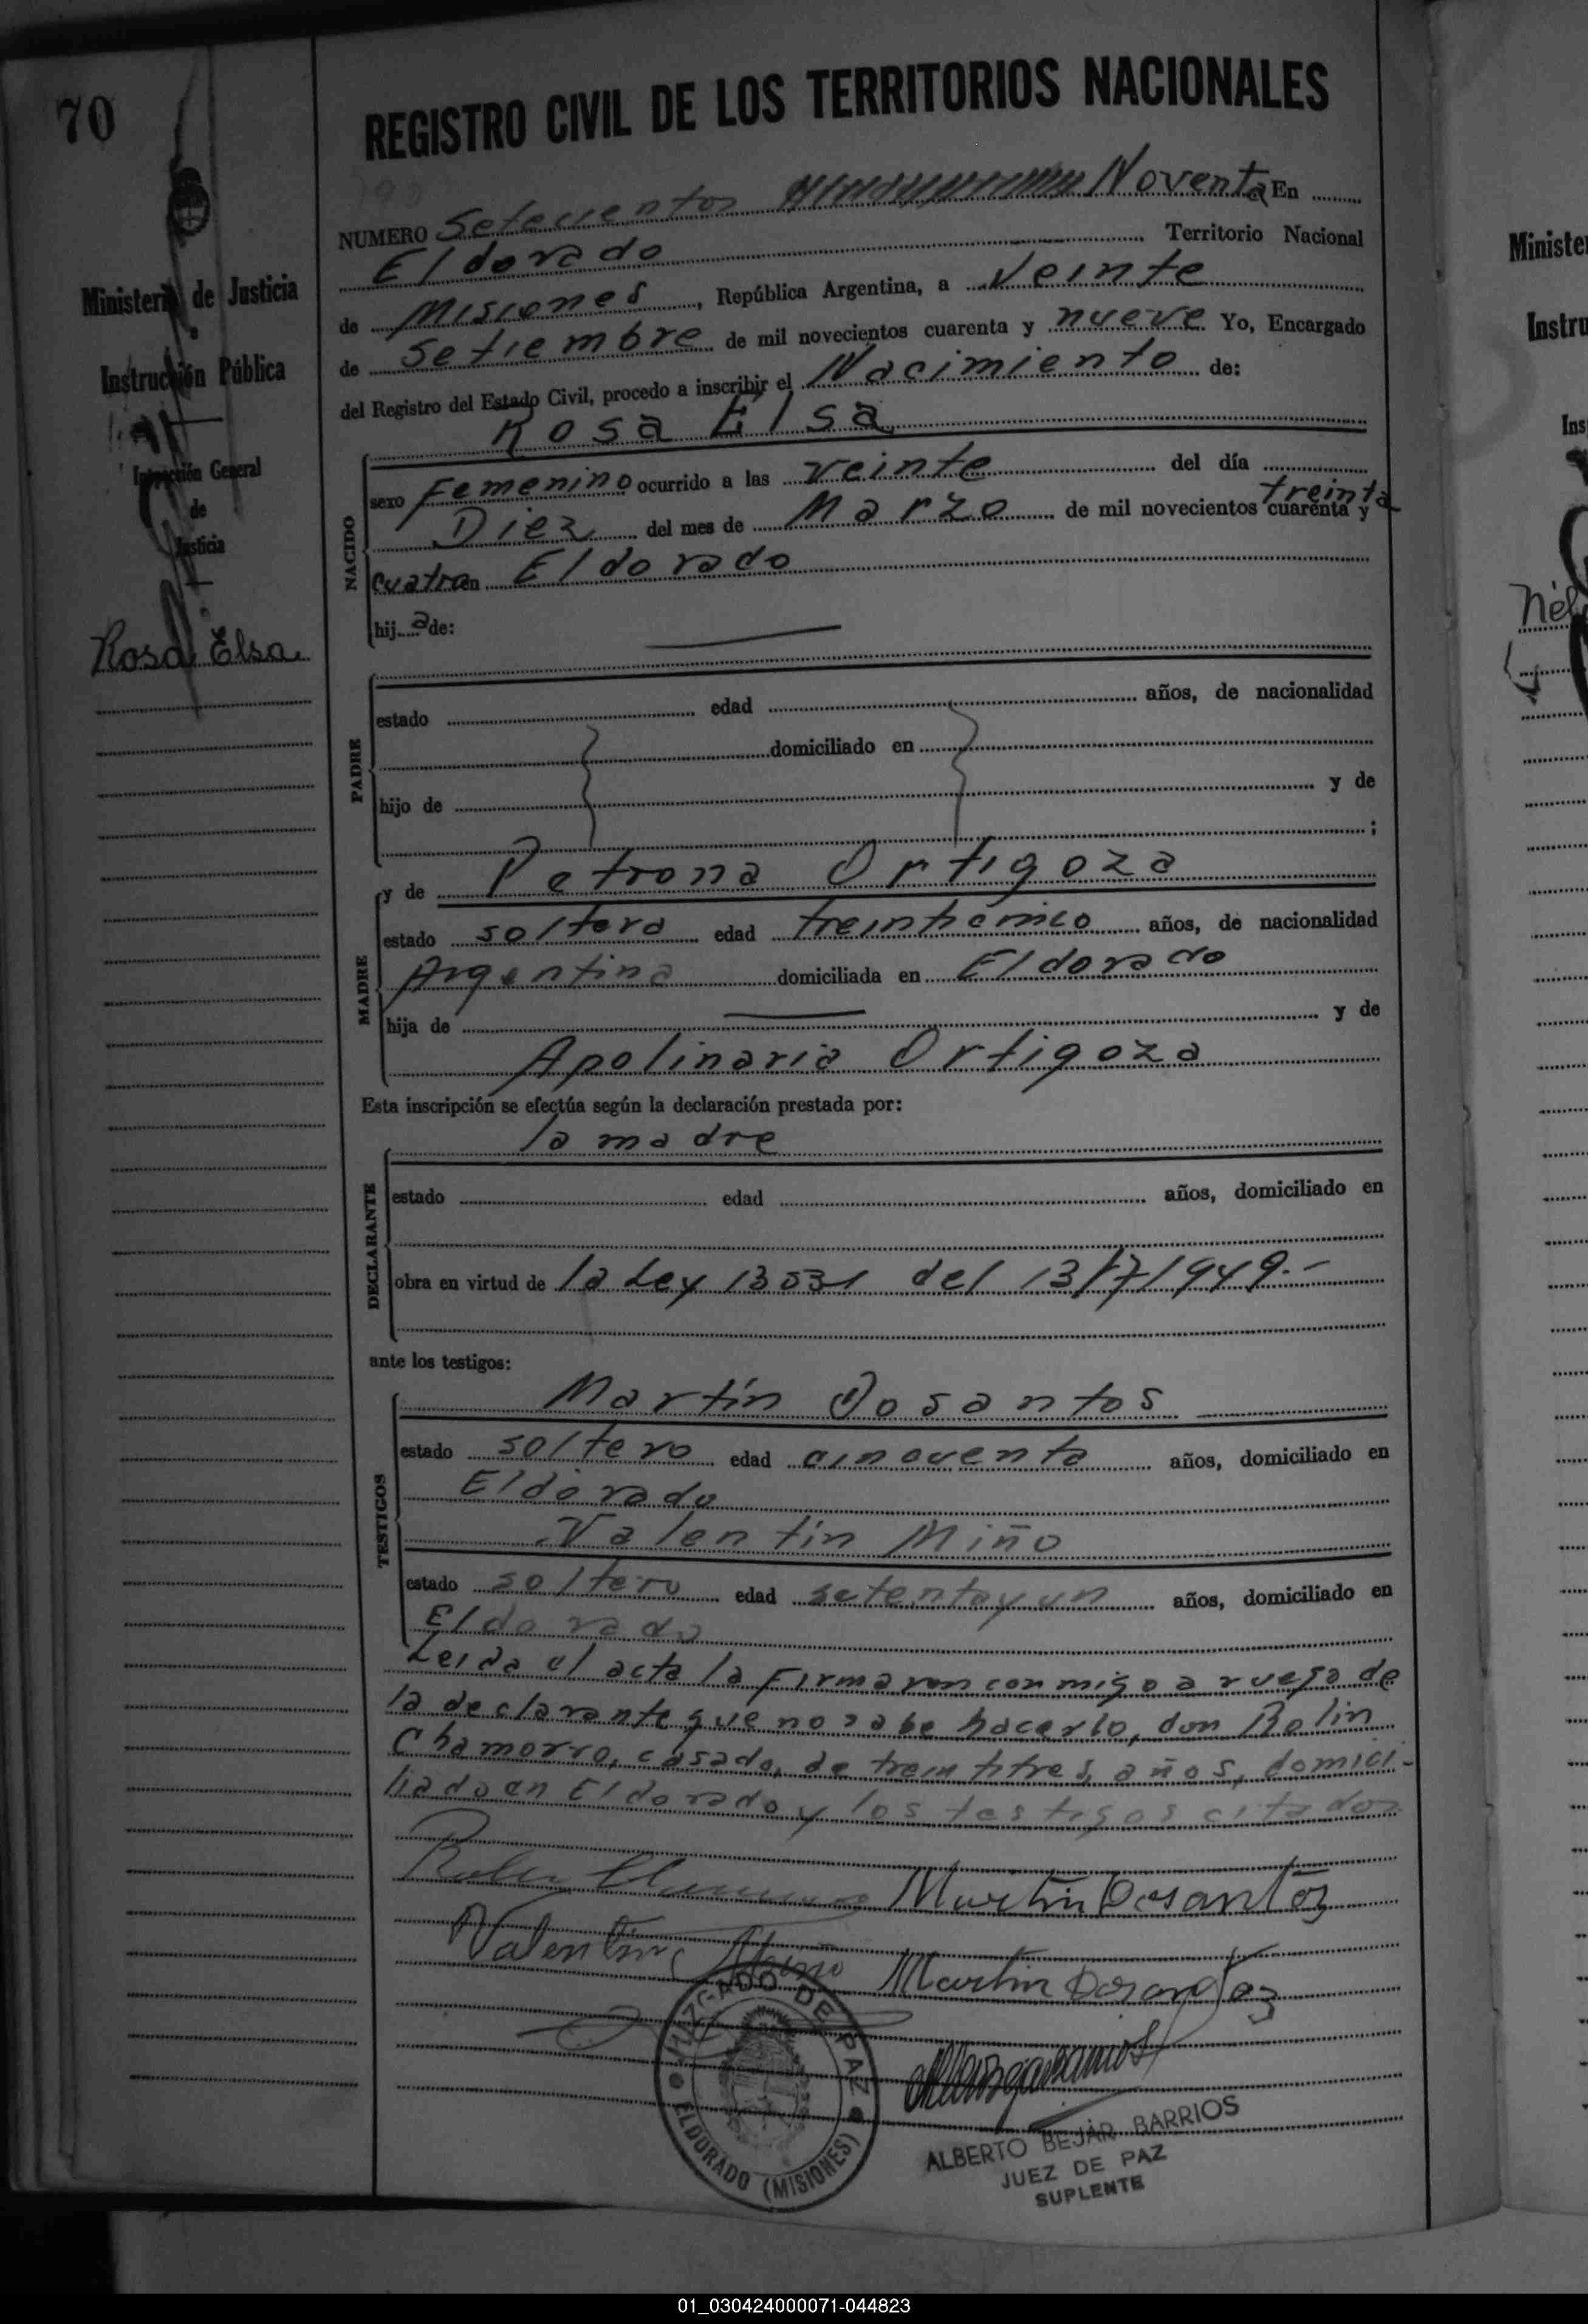 70
REGISTRO CIVIL DE LOS TERRITORIOS NACIONALES
NUMERO Setecientos Noventa En
Eldorado Territorio Nacional
de Misiones, República Argentina, a Veinte
de Setiembre de mil novecientos cuarenta y nueve Yo, Encargado
del Registro del Estado Civil, procedo a inscribir el Nacimiento de:
Rosa Elsa
Ministerio de Justicia
e
Instrucción Pública
Inspección General
de
Justicia
Rosa Elsa
NACIDO
sexo Femenino ocurrido a las veinte del día
treinta
Diez del mes de Marzo de mil novecientos cuarenta y
cuatro en Eldorado
hija de:
PADRE
estado edad años, de nacionalidad
domiciliado en
hijo de y de
;
MADRE
y de Petrona Ortigoza
estado soltera edad treinticinco años, de nacionalidad
Argentina domiciliada en Eldorado
hija de y de
Apolinaria Ortigoza
Esta inscripción se efectúa según la declaración prestada por:
la madre
DECLARANTE
estado edad años, domiciliado en
obra en virtud de la Ley 13531 del 13/7/1949.-
ante los testigos:
TESTIGOS
Martín Dosantos
estado soltero edad cincuenta años, domiciliado en
Eldorado
Valentín Miño
estado soltero edad setentayun años, domiciliado en
Eldorado
Leida el acta la Firmaron conmigo a ruego de
la declarante que no sabe hacerlo, don Rolin
Chamorro, casado, de treintitres años, domici-
liado en Eldorado y los testigos citados
Martin Dosantos
Valentin Miño Martin Dosantos
JUZGADO DE PAZ
ELDORADO (MISIONES)
ALBERTO BEJAR BARRIOS
JUEZ DE PAZ
SUPLENTE
Ministe
Instru
Ins
Nél
01_030424000071-044823